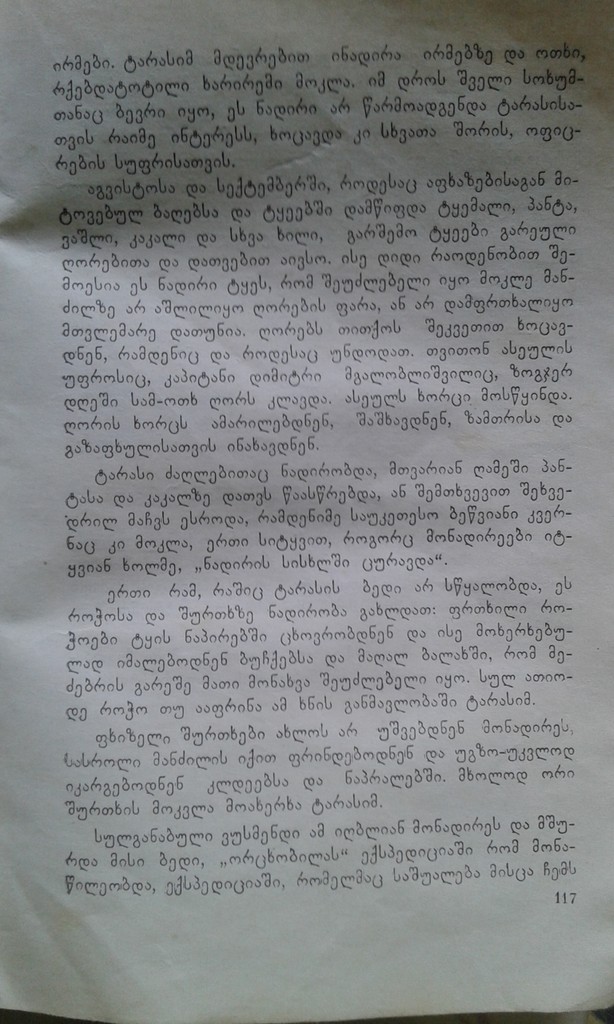 ირმები. ტარასიმ მდევრებით ინადირა ირმებზე და ოთხი,
რქებდატოტილი ხარირემი მოკლა. იმ დროს შველი სოხუმ-
თანაც ბევრი იყო, ეს ნადირი არ წარმოადგენდა ტარასისა-
თვის რაიმე ინტერესს, ხოცავდა კი სხვათა შორის, ოფიც-
რების სუფრისათვის.
აგვისტოსა და სექტემბერში, როდესაც აფხაზებისაგან მი-
ტოვებულ ბაღებსა და ტყეებში დამწიფდა ტყემალი, პანტა,
ვაშლი, კაკალი და სხვა ხილი, გარშემო ტყეები გარეული
ღორებითა და დათვებით აივსო. ისე დიდი რაოდენობით შე-
მოესია ეს ნადირი ტყეს, რომ შეუძლებელი იყო მოკლე მან-
ძილზე არ აშლილიყო ღორების ფარა, ან არ დამფრთხალიყო
მთვლემარე დათუნია. ღორებს თითქოს შეკვეთით ხოცავ-
დნენ, რამდენიც და როდესაც უნდოდათ. თვითონ ასეულის
უფროსიც, კაპიტანი დიმიტრი მგალობლიშვილიც, ზოგჯერ
დღეში სამ-ოთხ ღორს კლავდა. ასეულს ხორცი მოსწყინდა.
ღორის ხორცს ამარილებდნენ, შაშხავდნენ, ზამთრისა და
გაზაფხულისათვის ინახავდნენ.
ტარასი ძაღლებითაც ნადირობდა, მთვარიან ღამეში პან-
ტასა და კაკალზე დათვს წაასწრებდა, ან შემთხვევით შეხვე-
დრილ მაჩვს ესროდა, რამდენიმე საუკეთესო ბეწვიანი კვერ-
ნაც კი მოკლა, ერთი სიტყვით, როგორც მონადირეები იტ-
ყვიან ხოლმე, „ნადირის სისხლში ცურავდა“.
ერთი რამ, რაშიც ტარასის ბედი არ სწყალობდა, ეს
როჭოსა და შურთხზე ნადირობა გახლდათ: ფრთხილი რო-
ჭოები ტყის ნაპირებში ცხოვრობდნენ და ისე მოხერხებუ-
ლად იმალებოდნენ ბუჩქებსა და მაღალ ბალახში, რომ მე-
ძებრის გარეშე მათი მონახვა შეუძლებელი იყო. სულ ათიო-
დე როჭო თუ ააფრინა ამ ხნის განმავლობაში ტარასიმ.
ფხიზელი შურთხები ახლოს არ უშვებდნენ მონადირეს,
სასროლი მანძილის იქით ფრინდებოდნენ და უგზო-უკვლოდ
იკარგებოდნენ კლდეებსა და ნაპრალებში. მხოლოდ ორი
შურთხის მოკვლა მოახერხა ტარასიმ.
სულგანაბული ვუსმენდი ამ იღბლიან მონადირეს და მშუ-
რდა მისი ბედი, „ორცხობილას“ ექსპედიციაში რომ მონა-
წილეობდა, ექსპედიციაში, რომელმაც საშუალება მისცა ჩემს
117